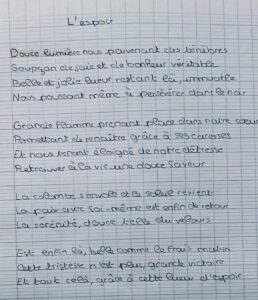 L'espoir
Douce lumière nous parvenant des ténèbres
Soupçon de joie et de bonheur véritable
Belle et jolie lueur restant là, immuable
Nous poussant même à persévérer dans le noir
Grande flamme prenant place dans notre cœur
Permettant de renaître grâce à ses caresses
Et nous tenant éloigné de notre détresse
Retrouver à la vie une douce saveur
La colombe s'envole et le soleil revient
La paix avec soi-même est enfin de retour
La sérénité, douce telle du velours
Est enfin là, belle comme le frais matin
Cette tristesse n'est plus, grande victoire
Et tout cela, grâce à cette lueur d'espoir